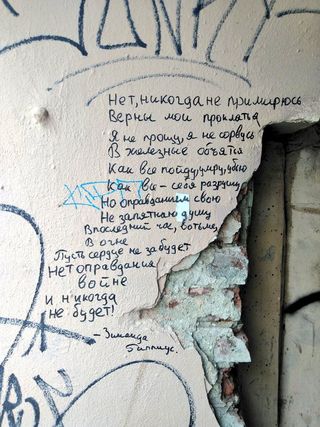 Нет, никогда не примирюсь
Верны мои проклятья
Я не прощу, я не сорвусь
В железные объятья
Как все пойду, умру, убью
Как все - себя разрушу
Но оправданием свою
Не запятнаю душу
В последний час, во тьме,
В огне
Пусть сердце не забудет
Нет оправдания
войне
и никогда
не будет!
- Зинаида
Гиппиус.